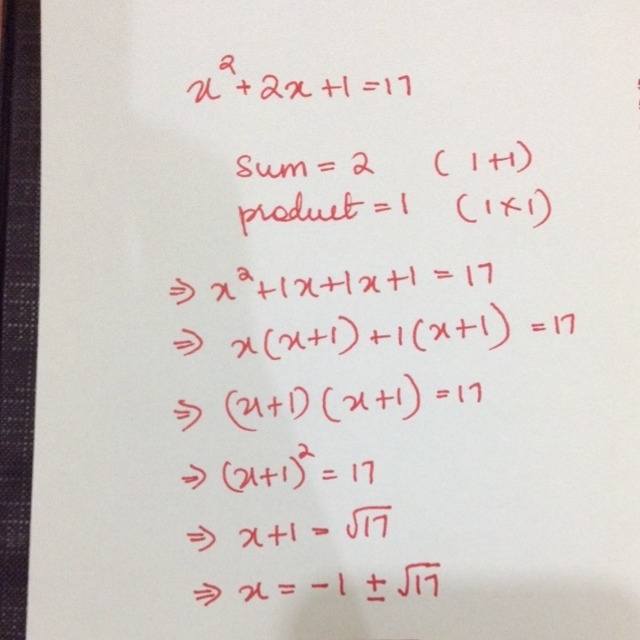 x² + 2x + 1 = 17
Sum = 2 (1+1)
product = 1 (1×1)
⇒ x² + 1x + 1x + 1 = 17
⇒ x(x+1) + 1(x+1) = 17
⇒ (x+1)(x+1) = 17
⇒ (x+1)² = 17
⇒ x+1 = √17
⇒ x = -1 ± √17